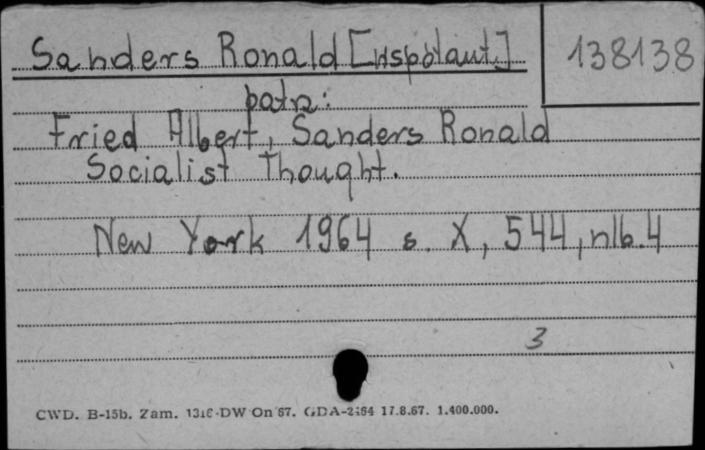 Sanders Ronald [współaut.] 138138
patrz:
Fried Albert, Sanders Ronald
Socialist Thought.
New York 1964 s. X, 544, nlb. 4
3
CWD. B-15b. Zam. 1316-DW On 67. GDA-2464 17.8.67. 1.400.000.